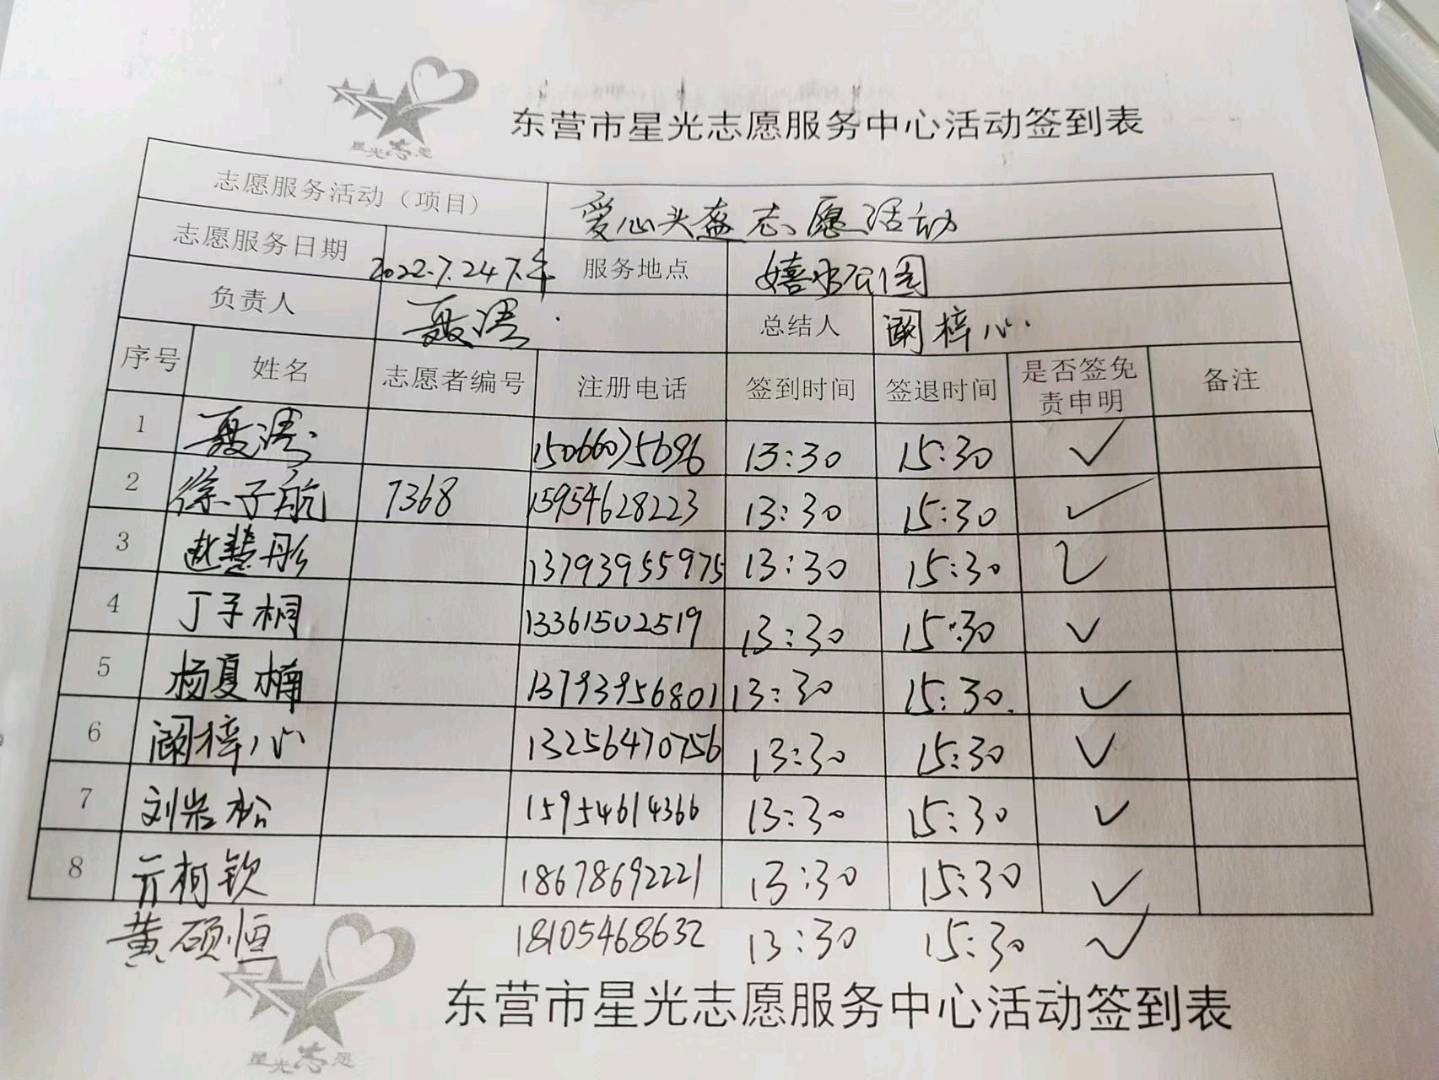 星光志愿
东营市星光志愿服务中心活动签到表
志愿服务活动（项目） 爱心头盔志愿活动
志愿服务日期 2022.7.24下午 服务地点 嬉水公园
负责人 聂涛 总结人 阚梓心
序号 姓名 志愿者编号 注册电话 签到时间 签退时间 是否签免责申明 备注
1 聂涛 15066075696 13:30 15:30 ✓
2 徐子航 7368 15954628223 13:30 15:30 ✓
3 赵慧彤 13793955975 13:30 15:30 ✓
4 丁子桐 13361502519 13:30 15:30 ✓
5 杨夏楠 13793956801 13:30 15:30 ✓
6 阚梓心 13256470756 13:30 15:30 ✓
7 刘岩松 15954614366 13:30 15:30 ✓
8 亓柯钦 18678692221 13:30 15:30 ✓
黄硕恒 18105468632 13:30 15:30 ✓
东营市星光志愿服务中心活动签到表
星光志愿